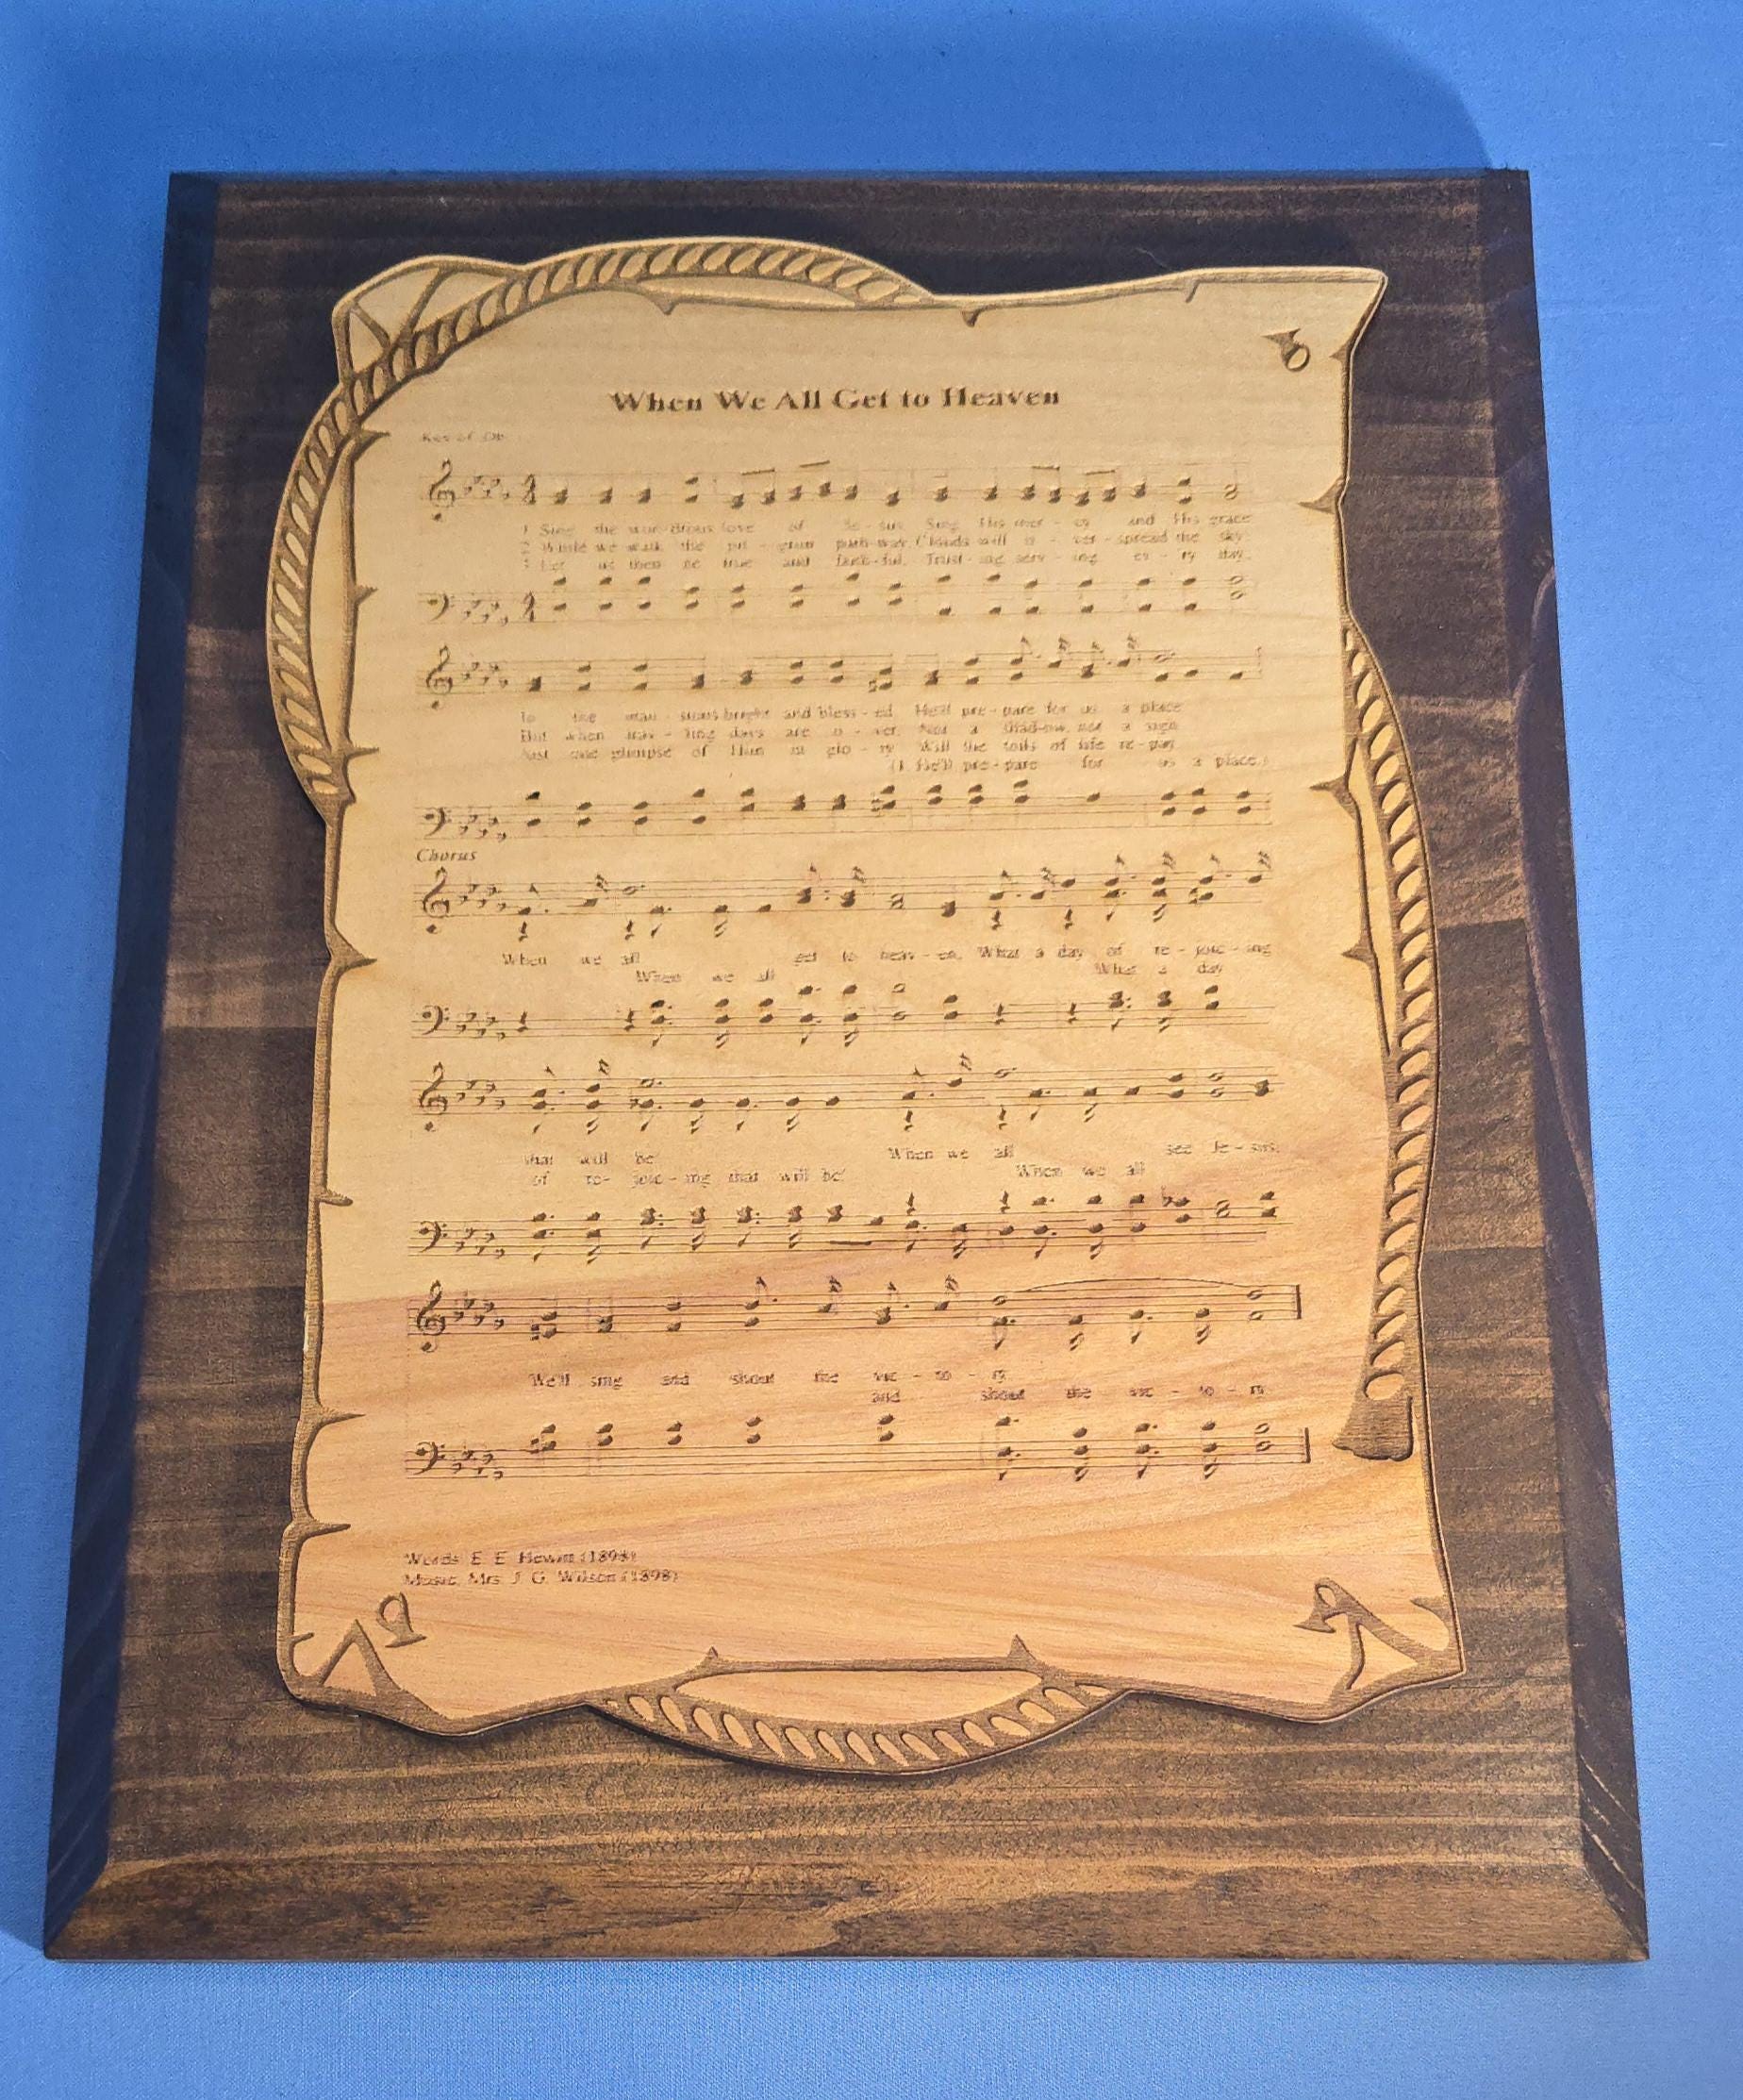 When We All Get to Heaven
Key of Db
1 Sing the won-drous love of Je-sus, Sing His mer-cy and His grace
2 While we walk the pil-grim path-way, Clouds will o-ver-spread the sky
3 Let us then be true and faith-ful, Trust-ing serv-ing ev-'ry day
In the man-sions bright and bless-ed He'll pre-pare for us a place
But when trav-'ling days are o-ver, Not a shad-ow, not a sigh
Just one glimpse of Him in glo-ry Will the toils of life re-pay
(1 He'll pre-pare for us a place.)
Chorus
When we all get to heav-en, What a day of re-joic-ing
When we all What a day
that will be! When we all see Je-sus,
of re-joic-ing that will be! When we all
We'll sing and shout the vic-to-ry
and shout the vic-to-ry
Words: E. E. Hewitt (1898)
Music: Mrs. J. G. Wilson (1898)